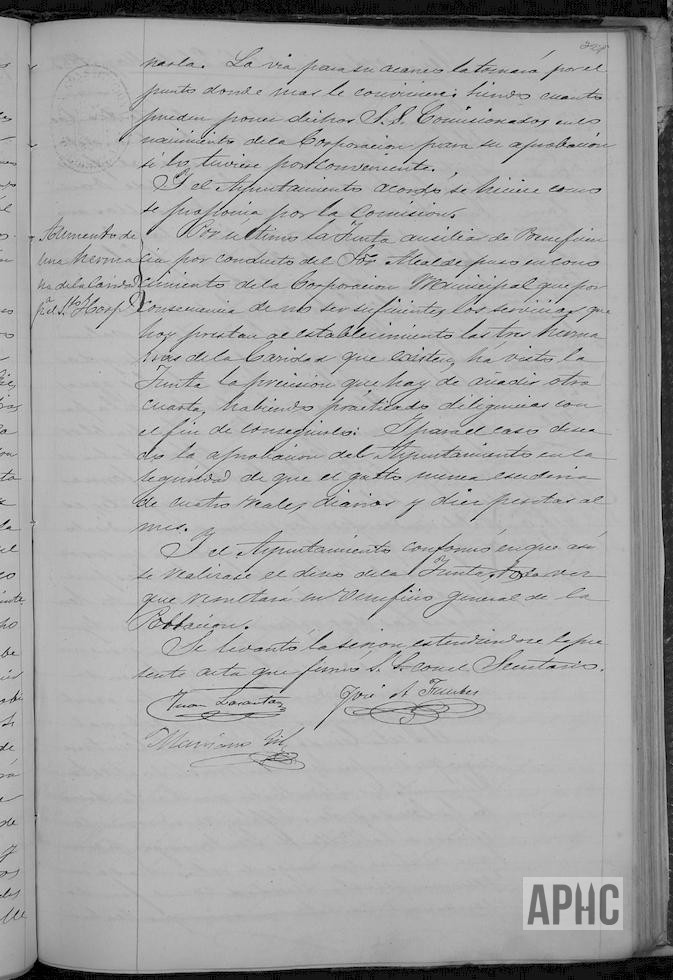 narla. La via para su acarreo la tomará por el
punto donde mas le conviniere: siendo cuanto
pueden poner dichos S.S. Comisionados en co
nocimiento de la Corporacion para su aprobacion
si lo tuviese por conveniente.
Y el Ayuntamiento acordó se hiciere como
se proponia por la Comision.
Aumento de
una herma
na de la Caridad
pª el Stº Hospl
Por ultimo la Junta auxiliar de Beneficen
cia por conducto del Sor Alcalde puso en cono
cimiento de la Corporacion Municipal que por
consecuencia de no ser suficientes los servicios que
hoy prestan al establecimiento las tres herma
nas de la Caridad que existen, ha visto la
Junta la precision que hay de añadir otra
cuarta, habiendo practicado diligencias con
el fin de conseguirlo: Y para el caso desea
da la aprobacion del Ayuntamiento en la
seguridad de que el gasto nunca escederia
de cuatro reales diarios y diez pesetas al
mes.
Y el Ayuntamiento conformó en que así
se realizase el deseo de la Junta, toda vez
que resultará en veneficio general de la
Poblacion.
Se levantó la sesion estendiendose la pre
sente acta que firmó S. S. con el Secretario.
Juan Lasarta
José A. Fuentes
Mariano Gil
APHC